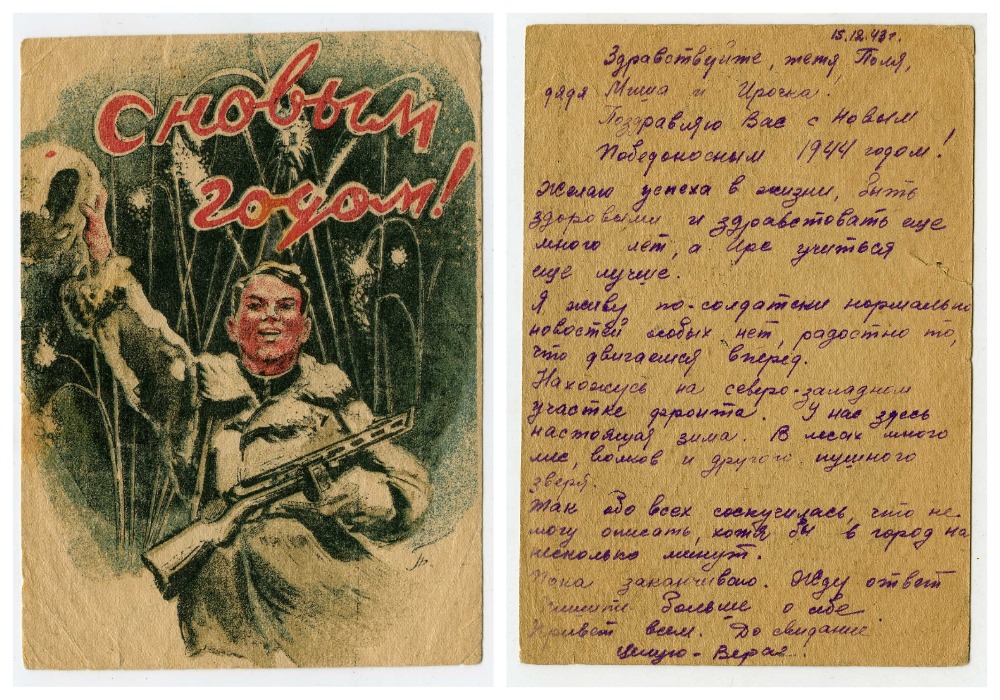 С новым
годом!
15.12.43 г.
Здравствуйте, тетя Поля,
дядя Миша и Ирочка.
Поздравляю Вас с Новым
Победоносным 1944 годом!
Желаю успеха в жизни, быть
здоровыми и здравствовать еще
много лет, а Ире учиться
еще лучше.
Я живу по-солдатски нормально
новостей особых нет, радостно то,
что двигаемся вперед.
Нахожусь на северо-западном
участке фронта. У нас здесь
настоящая зима. В лесах много
лис, волков и другого пушного
зверя.
Так обо всех соскучилась, что не
могу описать, хотя бы в город на
несколько минут.
Пока заканчиваю. Жду ответ
Пишите больше о себе
Привет всем. До свидание
Целую - Вера.